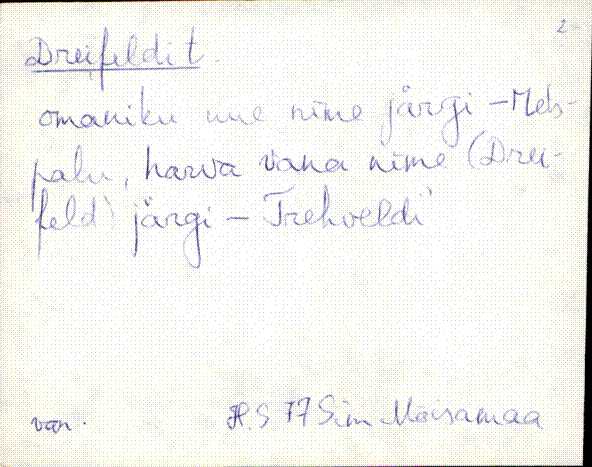 2
Dreifeldi t.
omaniku uue nime järgi – Mets-
palu, harva vana nime (Drei-
feldi järgi – Trehveldi
van. H.S 77 Sim Moisamaa